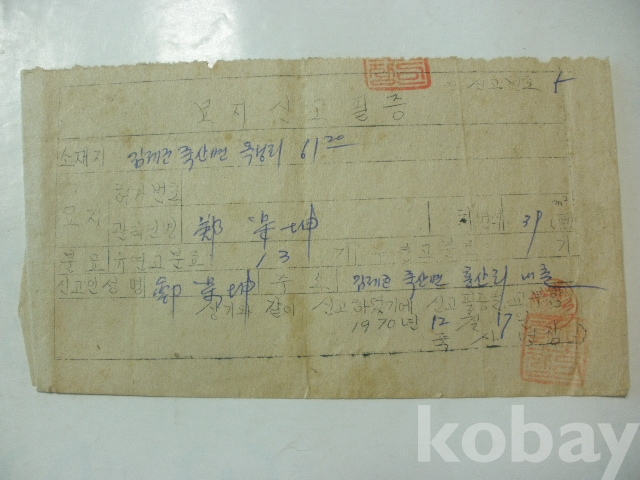 신고번호
묘지신고필증
소재지 김제군 죽산면 옥성리 61-20
허가번호
묘지
관리인명 鄭 坤 39
분묘 유연고분묘 13 기 무연고분묘 기
신고인 성명 鄭 坤 주소 김제군 죽산면 죽산리 내촌
상기와 같이 신고하였기에 신고필증을 교부함
1970년 12월 17일
죽산면장
kobay